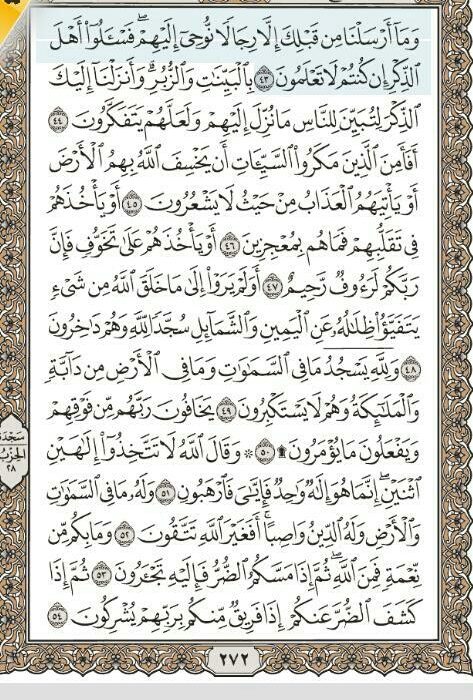 وَمَآ أَرْسَلْنَا مِن قَبْلِكَ إِلَّا رِجَالًا نُّوحِىٓ إِلَيْهِمْ ۖ فَسْـَٔلُوٓا۟ أَهْلَ
ٱلذِّكْرِ إِن كُنتُمْ لَا تَعْلَمُونَ ٤٣ بِٱلْبَيِّنَـٰتِ وَٱلزُّبُرِ ۗ وَأَنزَلْنَآ إِلَيْكَ
ٱلذِّكْرَ لِتُبَيِّنَ لِلنَّاسِ مَا نُزِّلَ إِلَيْهِمْ وَلَعَلَّهُمْ يَتَفَكَّرُونَ ٤٤
أَفَأَمِنَ ٱلَّذِينَ مَكَرُوا۟ ٱلسَّيِّـَٔاتِ أَن يَخْسِفَ ٱللَّهُ بِهِمُ ٱلْأَرْضَ
أَوْ يَأْتِيَهُمُ ٱلْعَذَابُ مِنْ حَيْثُ لَا يَشْعُرُونَ ٤٥ أَوْ يَأْخُذَهُمْ
فِى تَقَلُّبِهِمْ فَمَا هُم بِمُعْجِزِينَ ٤٦ أَوْ يَأْخُذَهُمْ عَلَىٰ تَخَوُّفٍ فَإِنَّ
رَبَّكُمْ لَرَءُوفٌ رَّحِيمٌ ٤٧ أَوَلَمْ يَرَوْا۟ إِلَىٰ مَا خَلَقَ ٱللَّهُ مِن شَىْءٍ
يَتَفَيَّؤُا۟ ظِلَـٰلُهُۥ عَنِ ٱلْيَمِينِ وَٱلشَّمَآئِلِ سُجَّدًا لِّلَّهِ وَهُمْ دَٰخِرُونَ
٤٨ وَلِلَّهِ يَسْجُدُ مَا فِى ٱلسَّمَـٰوَٰتِ وَمَا فِى ٱلْأَرْضِ مِن دَآبَّةٍ
وَٱلْمَلَـٰٓئِكَةُ وَهُمْ لَا يَسْتَكْبِرُونَ ٤٩ يَخَافُونَ رَبَّهُم مِّن فَوْقِهِمْ
وَيَفْعَلُونَ مَا يُؤْمَرُونَ ۩ ٥٠ ۞ وَقَالَ ٱللَّهُ لَا تَتَّخِذُوٓا۟ إِلَـٰهَيْنِ
ٱثْنَيْنِ ۖ إِنَّمَا هُوَ إِلَـٰهٌ وَٰحِدٌ ۖ فَإِيَّـٰىَ فَٱرْهَبُونِ ٥١ وَلَهُۥ مَا فِى ٱلسَّمَـٰوَٰتِ
وَٱلْأَرْضِ وَلَهُ ٱلدِّينُ وَاصِبًا ۚ أَفَغَيْرَ ٱللَّهِ تَتَّقُونَ ٥٢ وَمَا بِكُم مِّن
نِّعْمَةٍ فَمِنَ ٱللَّهِ ۖ ثُمَّ إِذَا مَسَّكُمُ ٱلضُّرُّ فَإِلَيْهِ تَجْـَٔرُونَ ٥٣ ثُمَّ إِذَا
كَشَفَ ٱلضُّرَّ عَنكُمْ إِذَا فَرِيقٌ مِّنكُم بِرَبِّهِمْ يُشْرِكُونَ ٥٤
سَجْدَة
الحِزْب
٢٨
٢٧٢